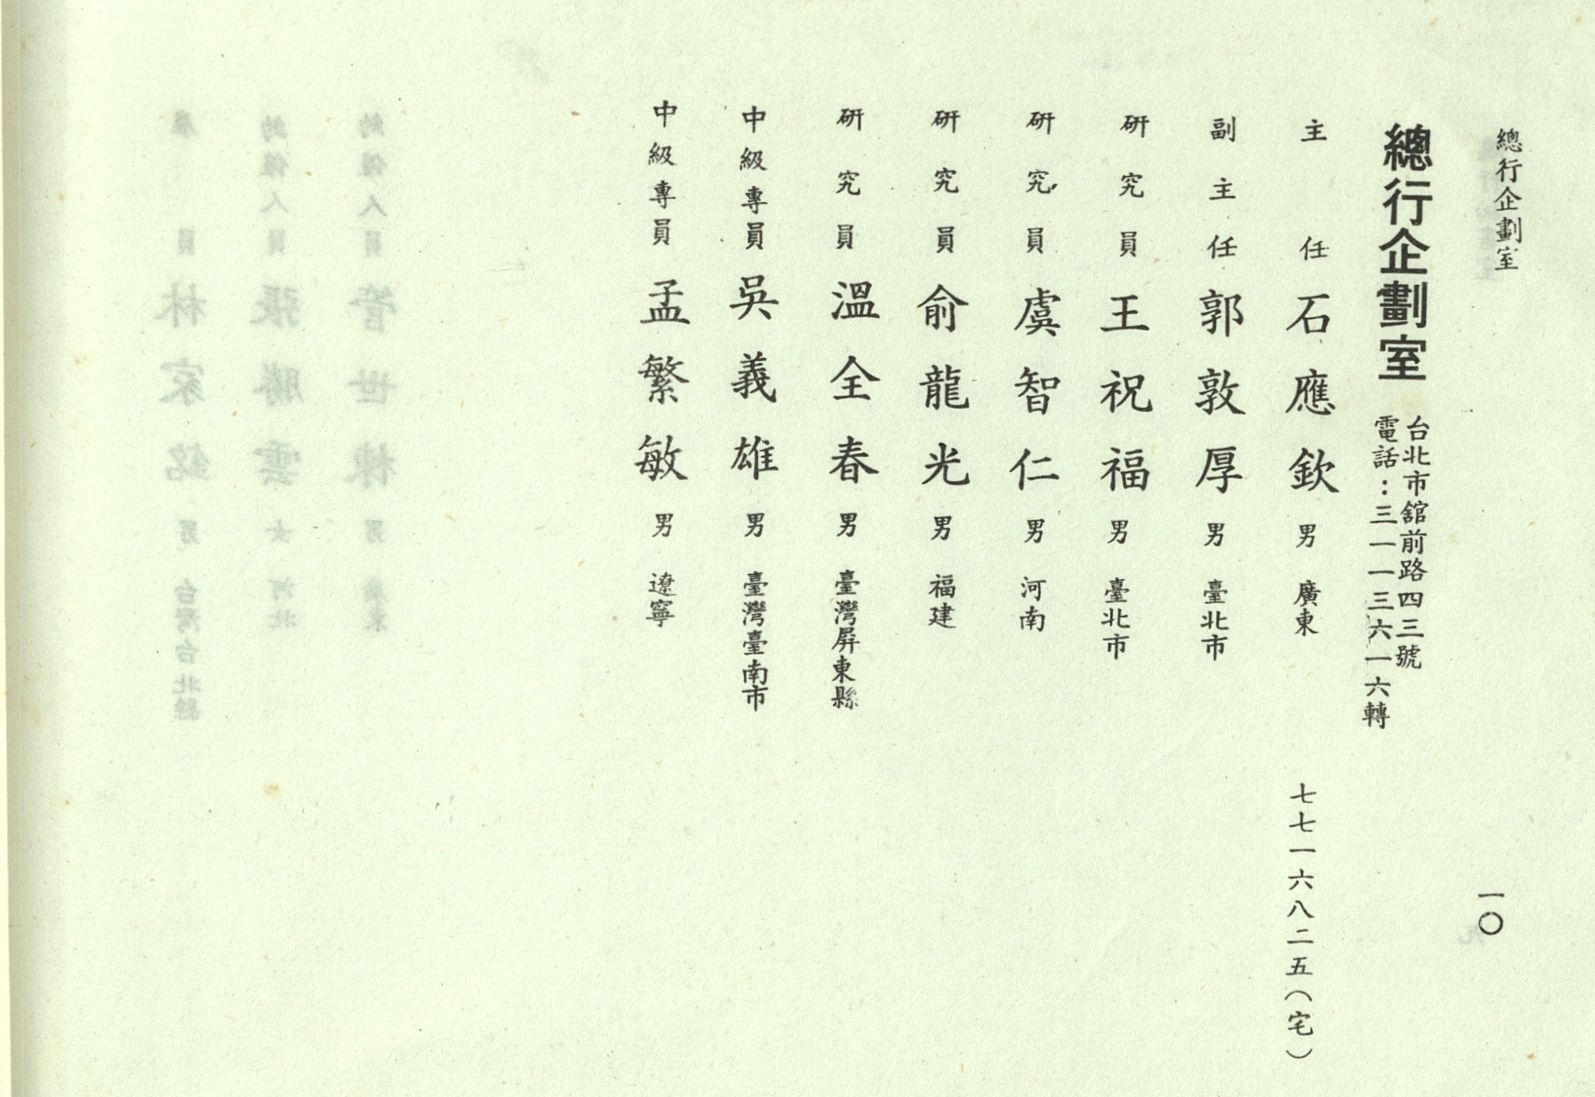 總行企劃室
一〇
總行企劃室
台北市舘前路四三號
電話：三一一三六一六轉
主任 石應欽 男 廣東 七七一六八二五（宅）
副主任 郭敦厚 男 臺北市
研究員 王祝福 男 臺北市
研究員 虞智仁 男 河南
研究員 俞龍光 男 福建
研究員 溫全春 男 臺灣屏東縣
中級專員 吳義雄 男 臺灣臺南市
中級專員 孟繁敏 男 遼寧